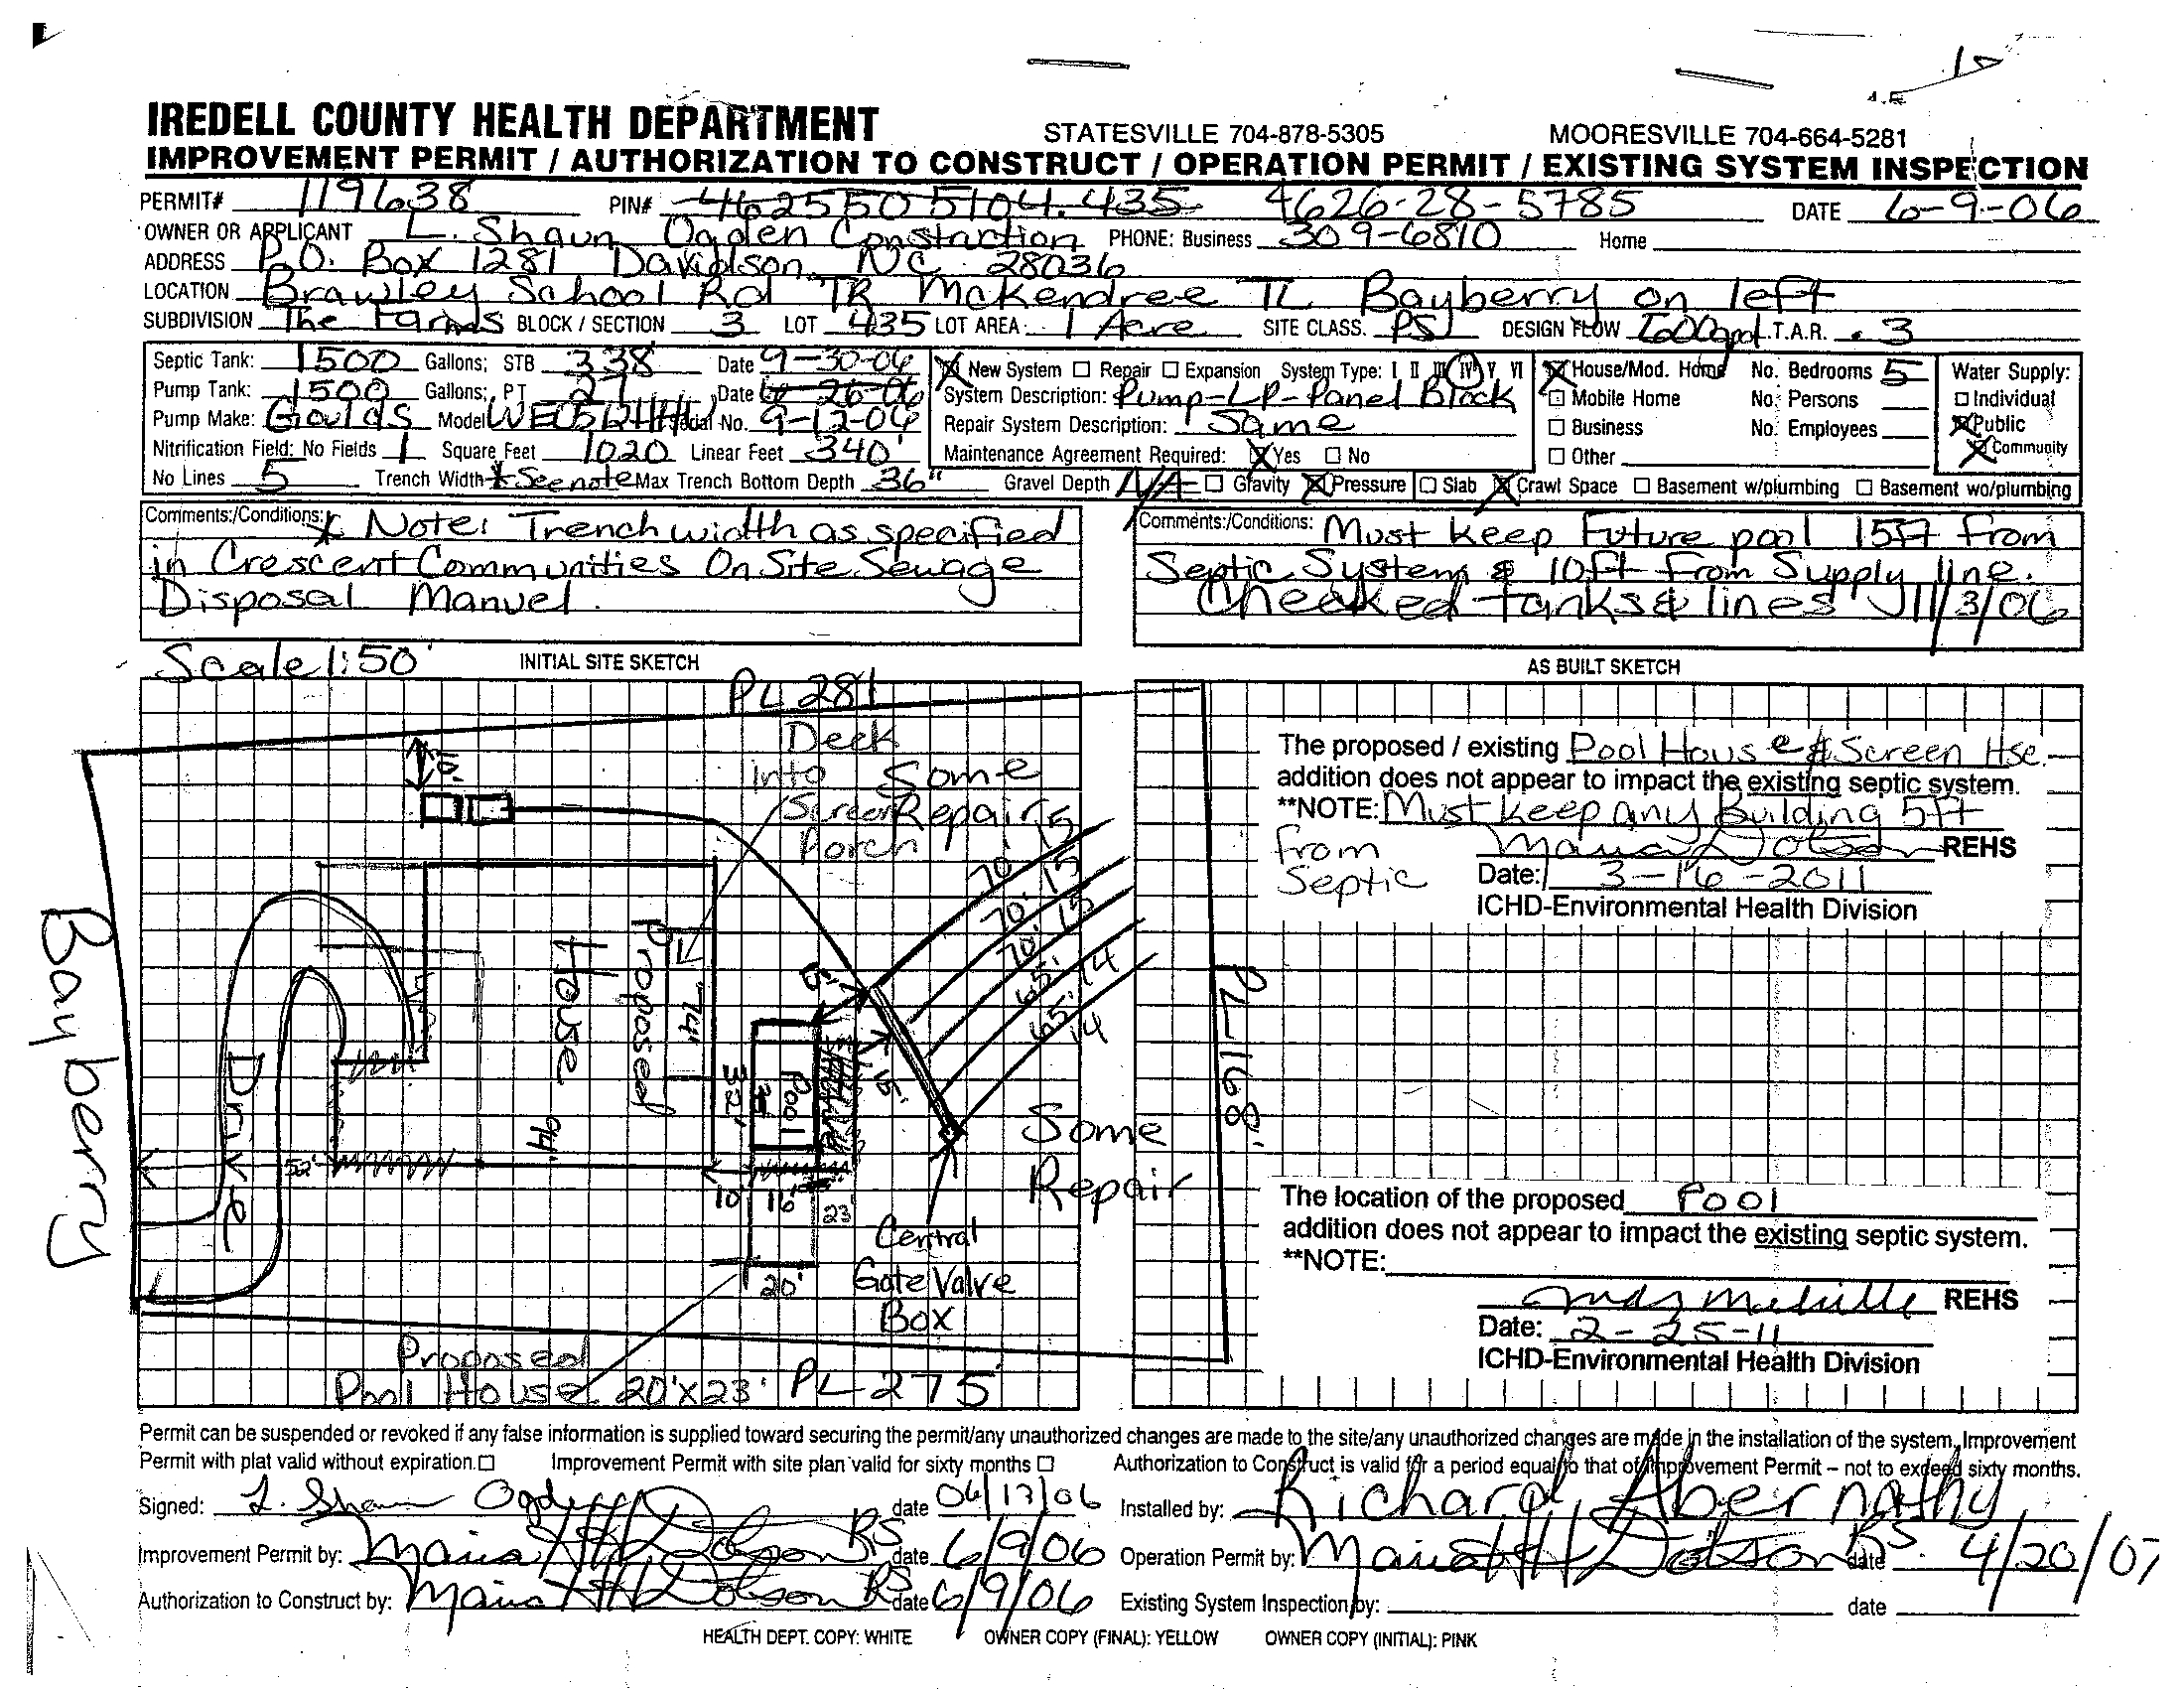 IREDELL COUNTY HEALTH DEPARTMENT STATESVILLE 704-878-5305 MOORESVILLE 704-664-5281
IMPROVEMENT PERMIT / AUTHORIZATION TO CONSTRUCT / OPERATION PERMIT / EXISTING SYSTEM INSPECTION
PERMIT# 119638 PIN# 4625505104.435 4626-28-5785 DATE 6-9-06
OWNER OR APPLICANT L. Shaun Ogden Construction PHONE: Business 309-6810 Home
ADDRESS P.O. Box 1281 Davidson, NC 28036
LOCATION Brawley School Rd TR McKendree TL Bayberry on left
SUBDIVISION The Farms BLOCK / SECTION 3 LOT 435 LOT AREA: 1 Acre SITE CLASS. PS DESIGN FLOW 600gpd T.A.R. .3
Septic Tank: 1500 Gallons; STB 338 Date 9-30-06 New System Repair Expansion System Type: I II III IV V VI House/Mod. Home No. Bedrooms 5 Water Supply:
Pump Tank: 1500 Gallons; PT 27 Date 6-26-06 System Description: Pump-LP-Panel Block Mobile Home No. Persons Individual
Pump Make: Goulds Model WE0512HH Serial No. 9-12-06 Repair System Description: Same Business No. Employees Public
Nitrification Field: No Fields 1 Square Feet 1020 Linear Feet 340' Maintenance Agreement Required: Yes No Other Community
No Lines 5 Trench Width * See note Max Trench Bottom Depth 36" Gravel Depth N/A Gravity Pressure Slab Crawl Space Basement w/plumbing Basement wo/plumbing
Comments:/Conditions: * Note: Trench width as specified
in Crescent Communities On Site Sewage
Disposal Manuel.
Comments:/Conditions: Must keep Future pool 15ft from
Septic System & 10ft from Supply line.
Checked tanks & lines 11/3/06
Scale 1:50' INITIAL SITE SKETCH
AS BUILT SKETCH
PL 281
Deck
into
Screen
Porch
Some
Repair
10'
70' 15
70' 15
70' 15
65' 14
65' 14
15'
15'
House
Proposed
74'
94'
32'
Pool
Drive
Bayberry
52'
10' 16' 23'
20'
Central
Gate Valve
Box
Some
Repair
PL-168'
Proposed
Pool House 20'x23' PL 275
The proposed / existing Pool House & Screen Hse.
addition does not appear to impact the existing septic system.
**NOTE: Must keep any Building 5ft
from
Septic
Maria Dotson REHS
Date: 3-16-2011
ICHD-Environmental Health Division
The location of the proposed Pool
addition does not appear to impact the existing septic system.
**NOTE:
REHS
Date: 2-25-11
ICHD-Environmental Health Division
Permit can be suspended or revoked if any false information is supplied toward securing the permit/any unauthorized changes are made to the site/any unauthorized changes are made in the installation of the system. Improvement
Permit with plat valid without expiration. Improvement Permit with site plan valid for sixty months Authorization to Construct is valid for a period equal to that of Improvement Permit – not to exceed sixty months.
Signed: L. Shaun Ogden date 06/13/06 Installed by: Richard Abernathy
Improvement Permit by: Maria H Dotson RS date 6/9/06 Operation Permit by: Maria H Dotson RS. date 4/20/07
Authorization to Construct by: Maria H Dotson RS date 6/9/06 Existing System Inspection by: date
HEALTH DEPT. COPY: WHITE OWNER COPY (FINAL): YELLOW OWNER COPY (INITIAL): PINK